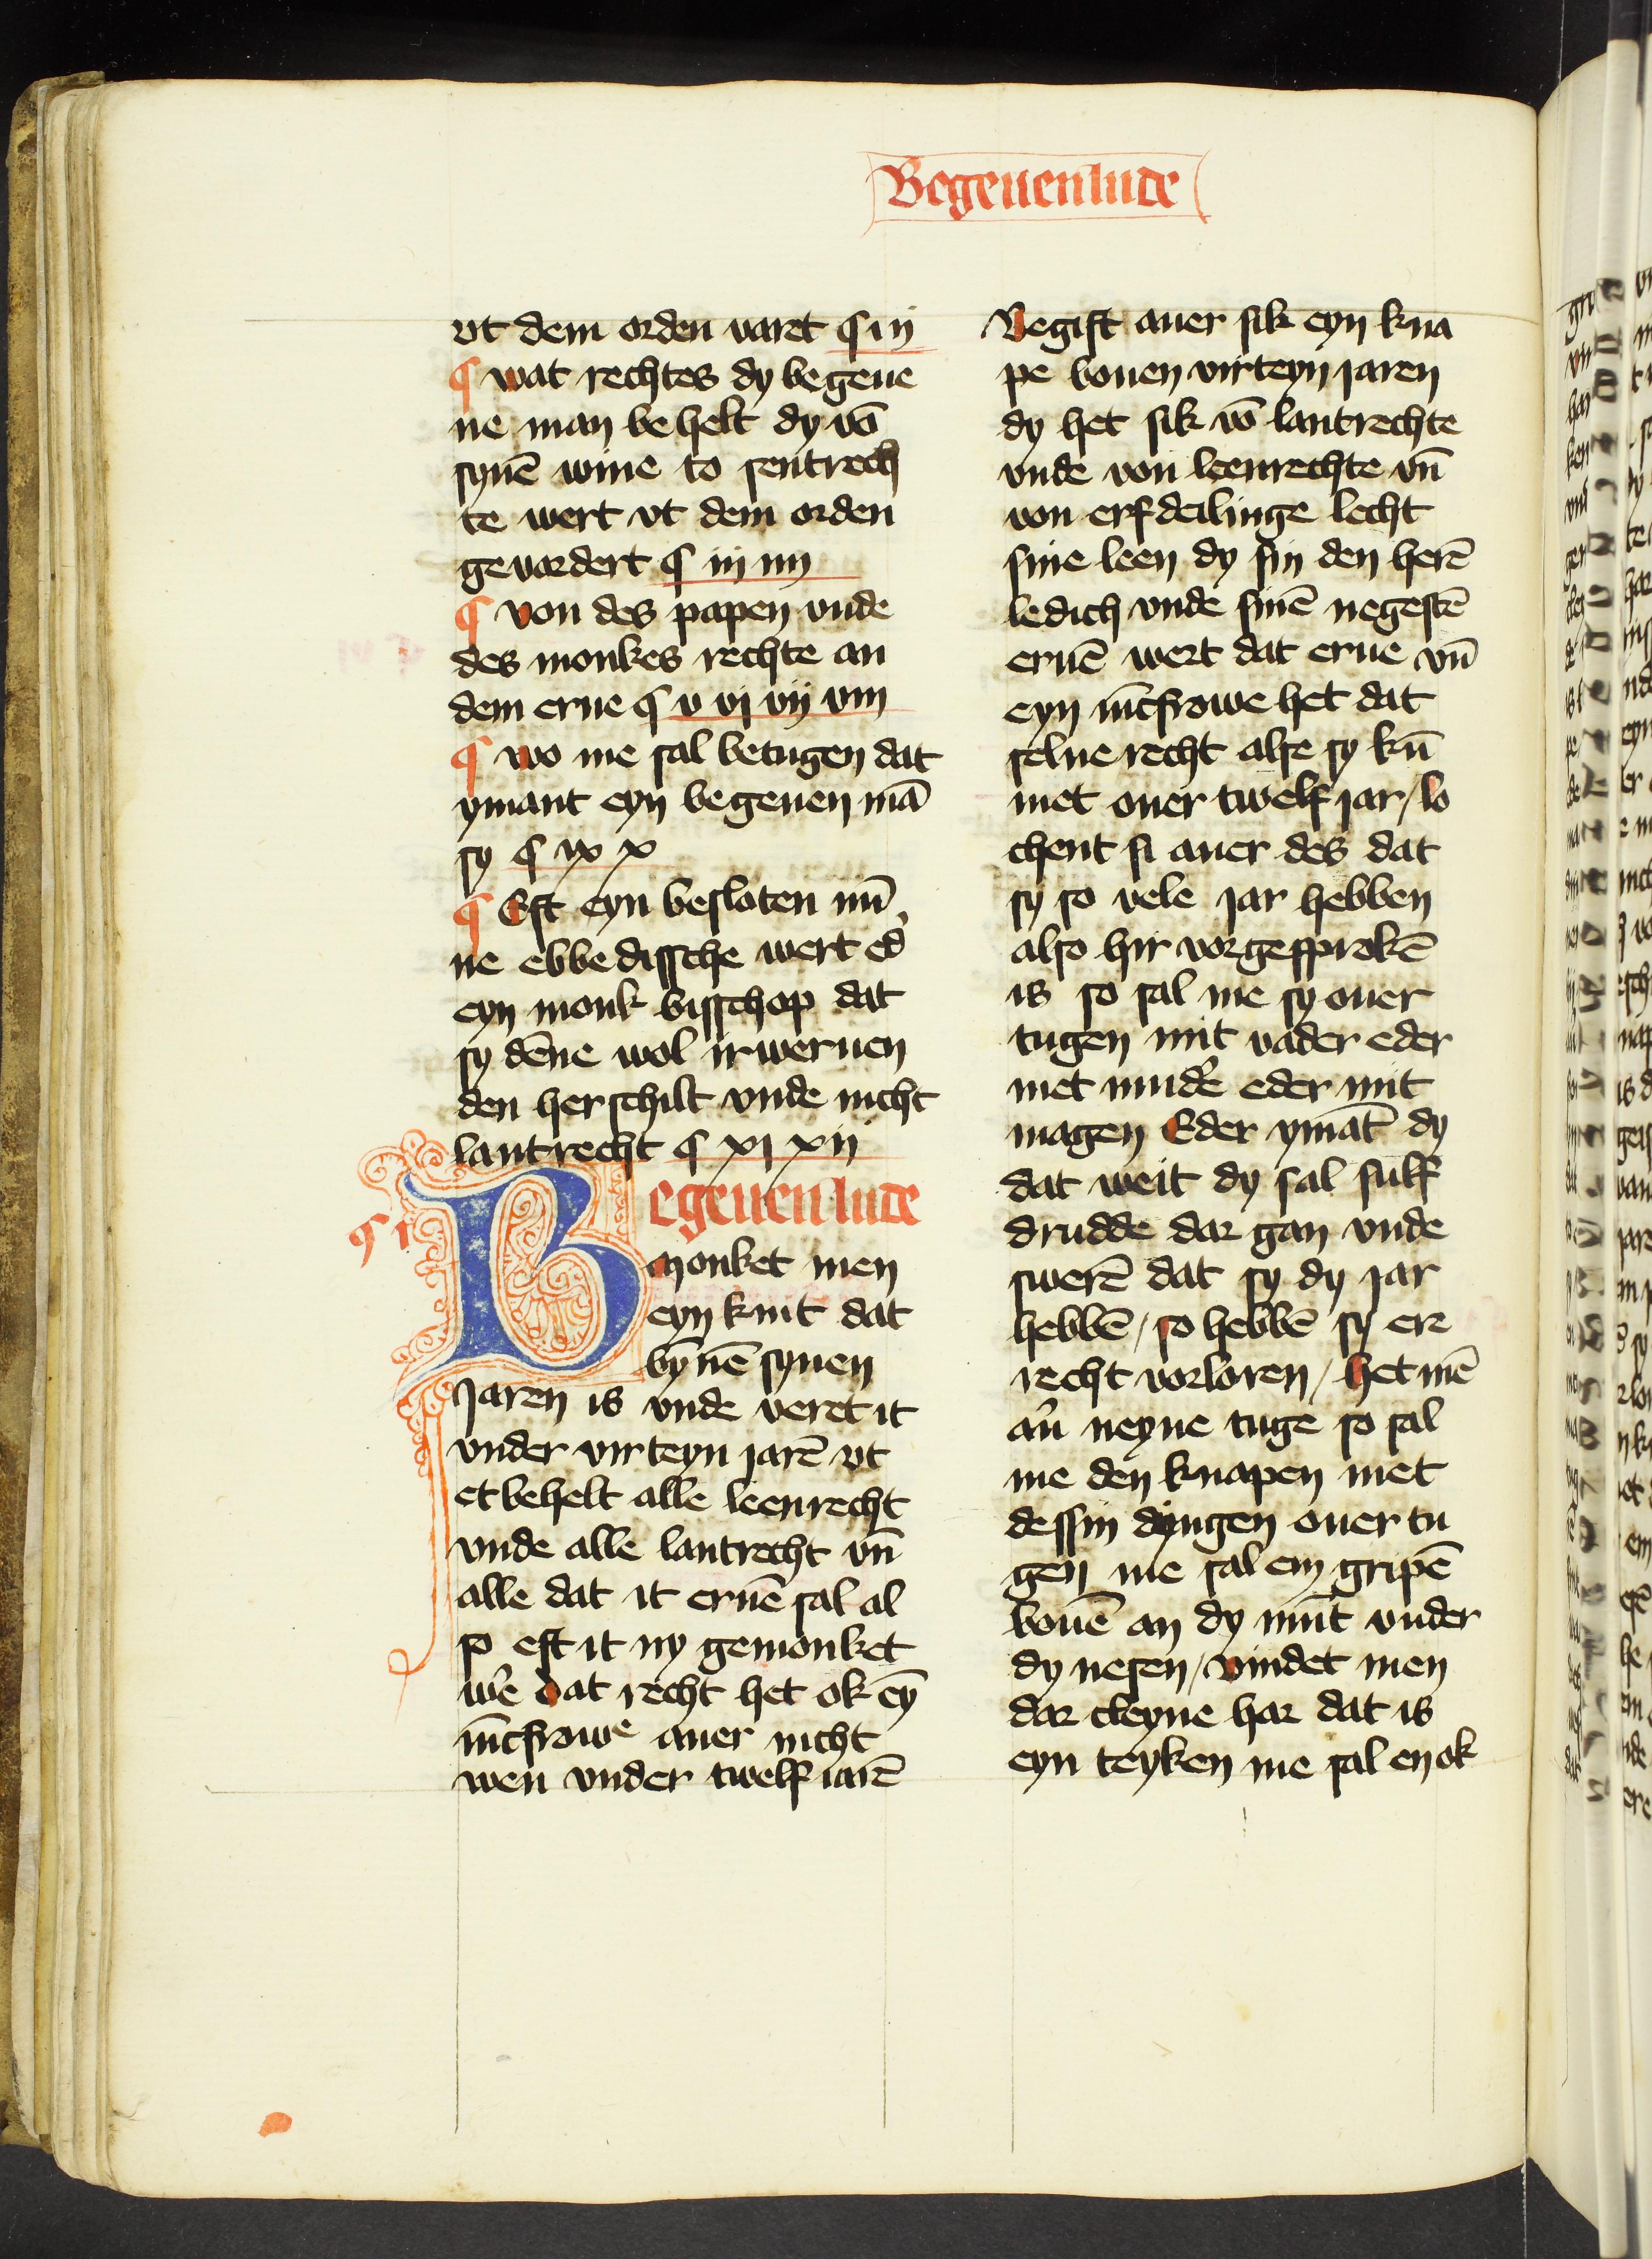 Begeuenlude
vt dem orden varet ¶ i ij
¶ wat rechtes dy begeue
ne man behelt dy vō
synē wiue to sentrech
te wert vt dem orden
gevordert ¶ iij iiij
¶ von des papen vnde
des monkes rechte an
dem erue ¶ v vj vij viij
¶ wo me sal betugen dat
ymant eyn begeuen mā
sy ¶ ix x
¶ Eft eyn besloten nū
ne ebbedissche wert ed'
eyn monk bisschop dat
sy dēne wol irweruen
den herschilt vnde nicht
lantrecht ¶ xj xij
¶ i
Begeuen lude
monket men
eyn kint dat
bȳnē synen
Jaren is vnde veret it
vnder virteyn jarē vt
et behelt alle leenrecht
vnde alle lantrecht vn̄
alle dat it eruē sal al
so eft it ny gemonket
we' dat recht het ok eȳ
iūcfrowe auer nicht
wen vnder twelf iarē
Begift auer sik eyn kna
pe bouen virteyn jaren
dy het sik vō lantrechte
vnde von leenrechte vn̄
von erfdeilinge lecht
sine leen dy sin den herē
ledich vnde sinē negestē
eruē wert dat erue vn̄
eyn iūcfrowe het dat
selue recht alse sy kū
met ouer twelf jar / lo
chent si auer des dat
sy so vele jar hebben
also hir vorgesprokē
is so sal me sy ouer
tugen mit vader eder
met mud'e eder mit
magen Eder ymāt dy
dat weit dy sal sulf
drudde dar gan vnde
swerē dat sy dy jar
hebbē / so hebbē sy ere
recht vorloren / het mē
au' neyne tuge so sal
me den knapen met
dessin dyngen ouer tu
gen me sal em gripē
bouē an dy mūt vnder
dy nesen / vindet men
dar cleyne har dat is
eyn teyken me sal en ok